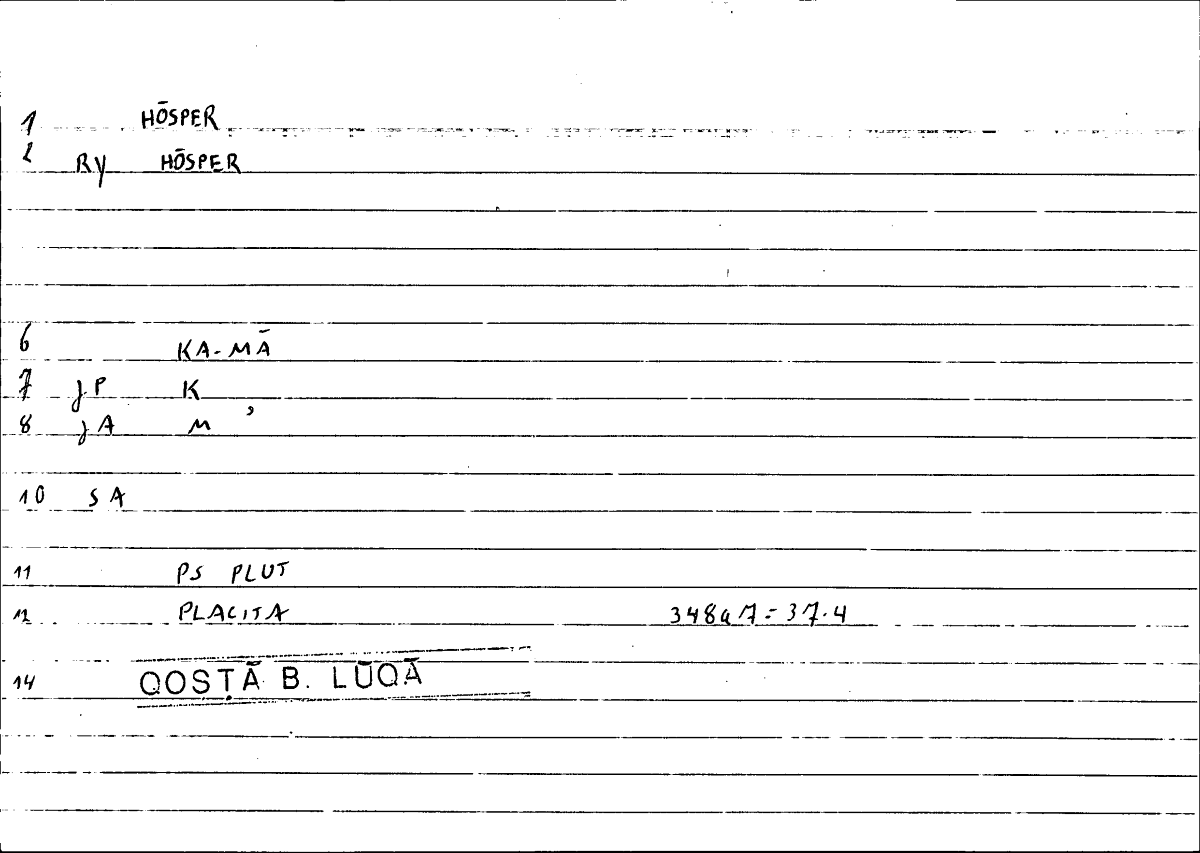 1 HŌSPER
2 RY HŌSPER
6 KA-MĀ
7 JP K
8 JA M ,
10 SA
11 PS PLUT
12 PLACITA 348a7=37.4
14 QOSṬĀ B. LŪQĀ